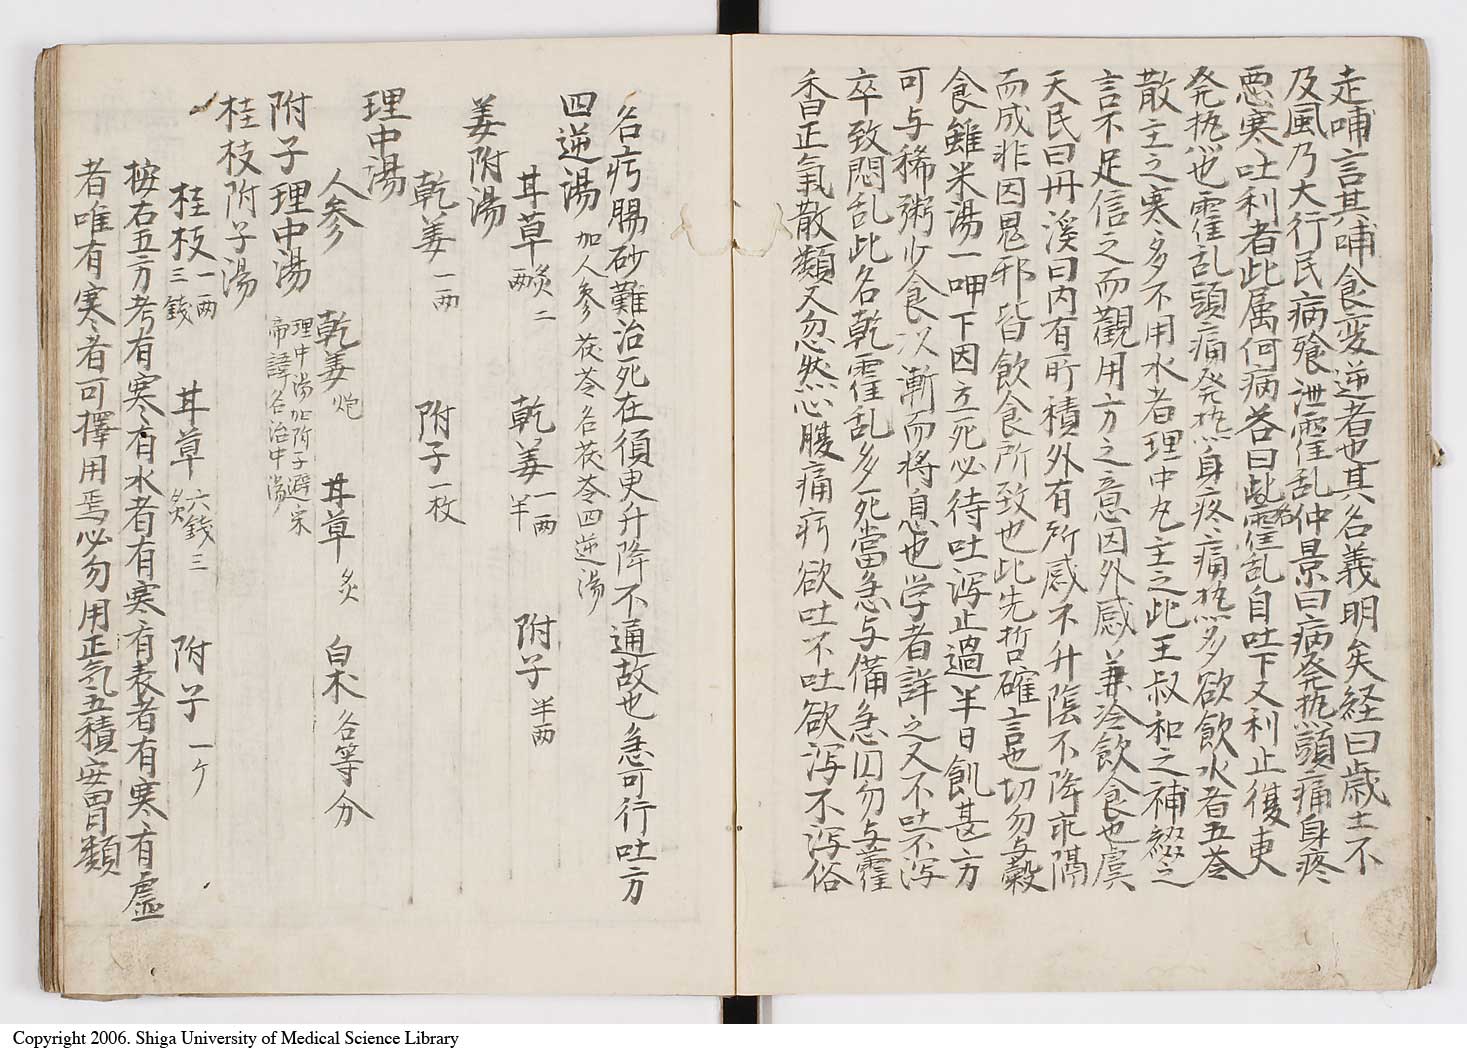 走哺言其哺食変逆者也其名義明矣経曰歳土不
及風乃大行民病飧泄霍乱仲景曰病発热頭痛身疼
悪寒吐利者此属何病答曰此名霍乱自吐下又利止復更
発热也霍乱頭痛発热身疼痛热多欲飲水者五苓
散主之寒多不用水者理中丸主之此王叔和之補綴之
言不足信之而觀用方之意因外感兼冷飲食也虞
天民曰丹溪曰内有所積外有所感不升陰不降乖隔
而成非因鬼邪皆飲食所致也此先哲確言也切勿与穀
食雖米湯一呷下因立死必待吐瀉止過半日飢甚方
可与稀粥少食以漸而将息也学者詳之又不吐不瀉
卒致悶乱此名乾霍乱多死當急与備急円勿与藿
香正氣散類又忽然心腹痛疞欲吐不吐欲瀉不瀉俗
名疞腸砂難治死在須臾升降不通故也急可行吐方
四逆湯 加人參茯苓名茯苓四逆湯
甘草 炙二两 乾姜 一两半 附子 半两
姜附湯
乾姜 一两 附子 一枚
理中湯
人参 乾姜 炮 甘草 炙 白朮 各等分
附子理中湯 理中湯加附子避宋帝諱名治中湯
桂枝附子湯
桂枝 一两三錢 甘草 六錢三炙 附子 一ケ
按右五方考有寒有水者有寒有表者有寒有虚
者唯有寒者可擇用焉必勿用正気五積安胃類
Copyright 2006. Shiga University of Medical Science Library